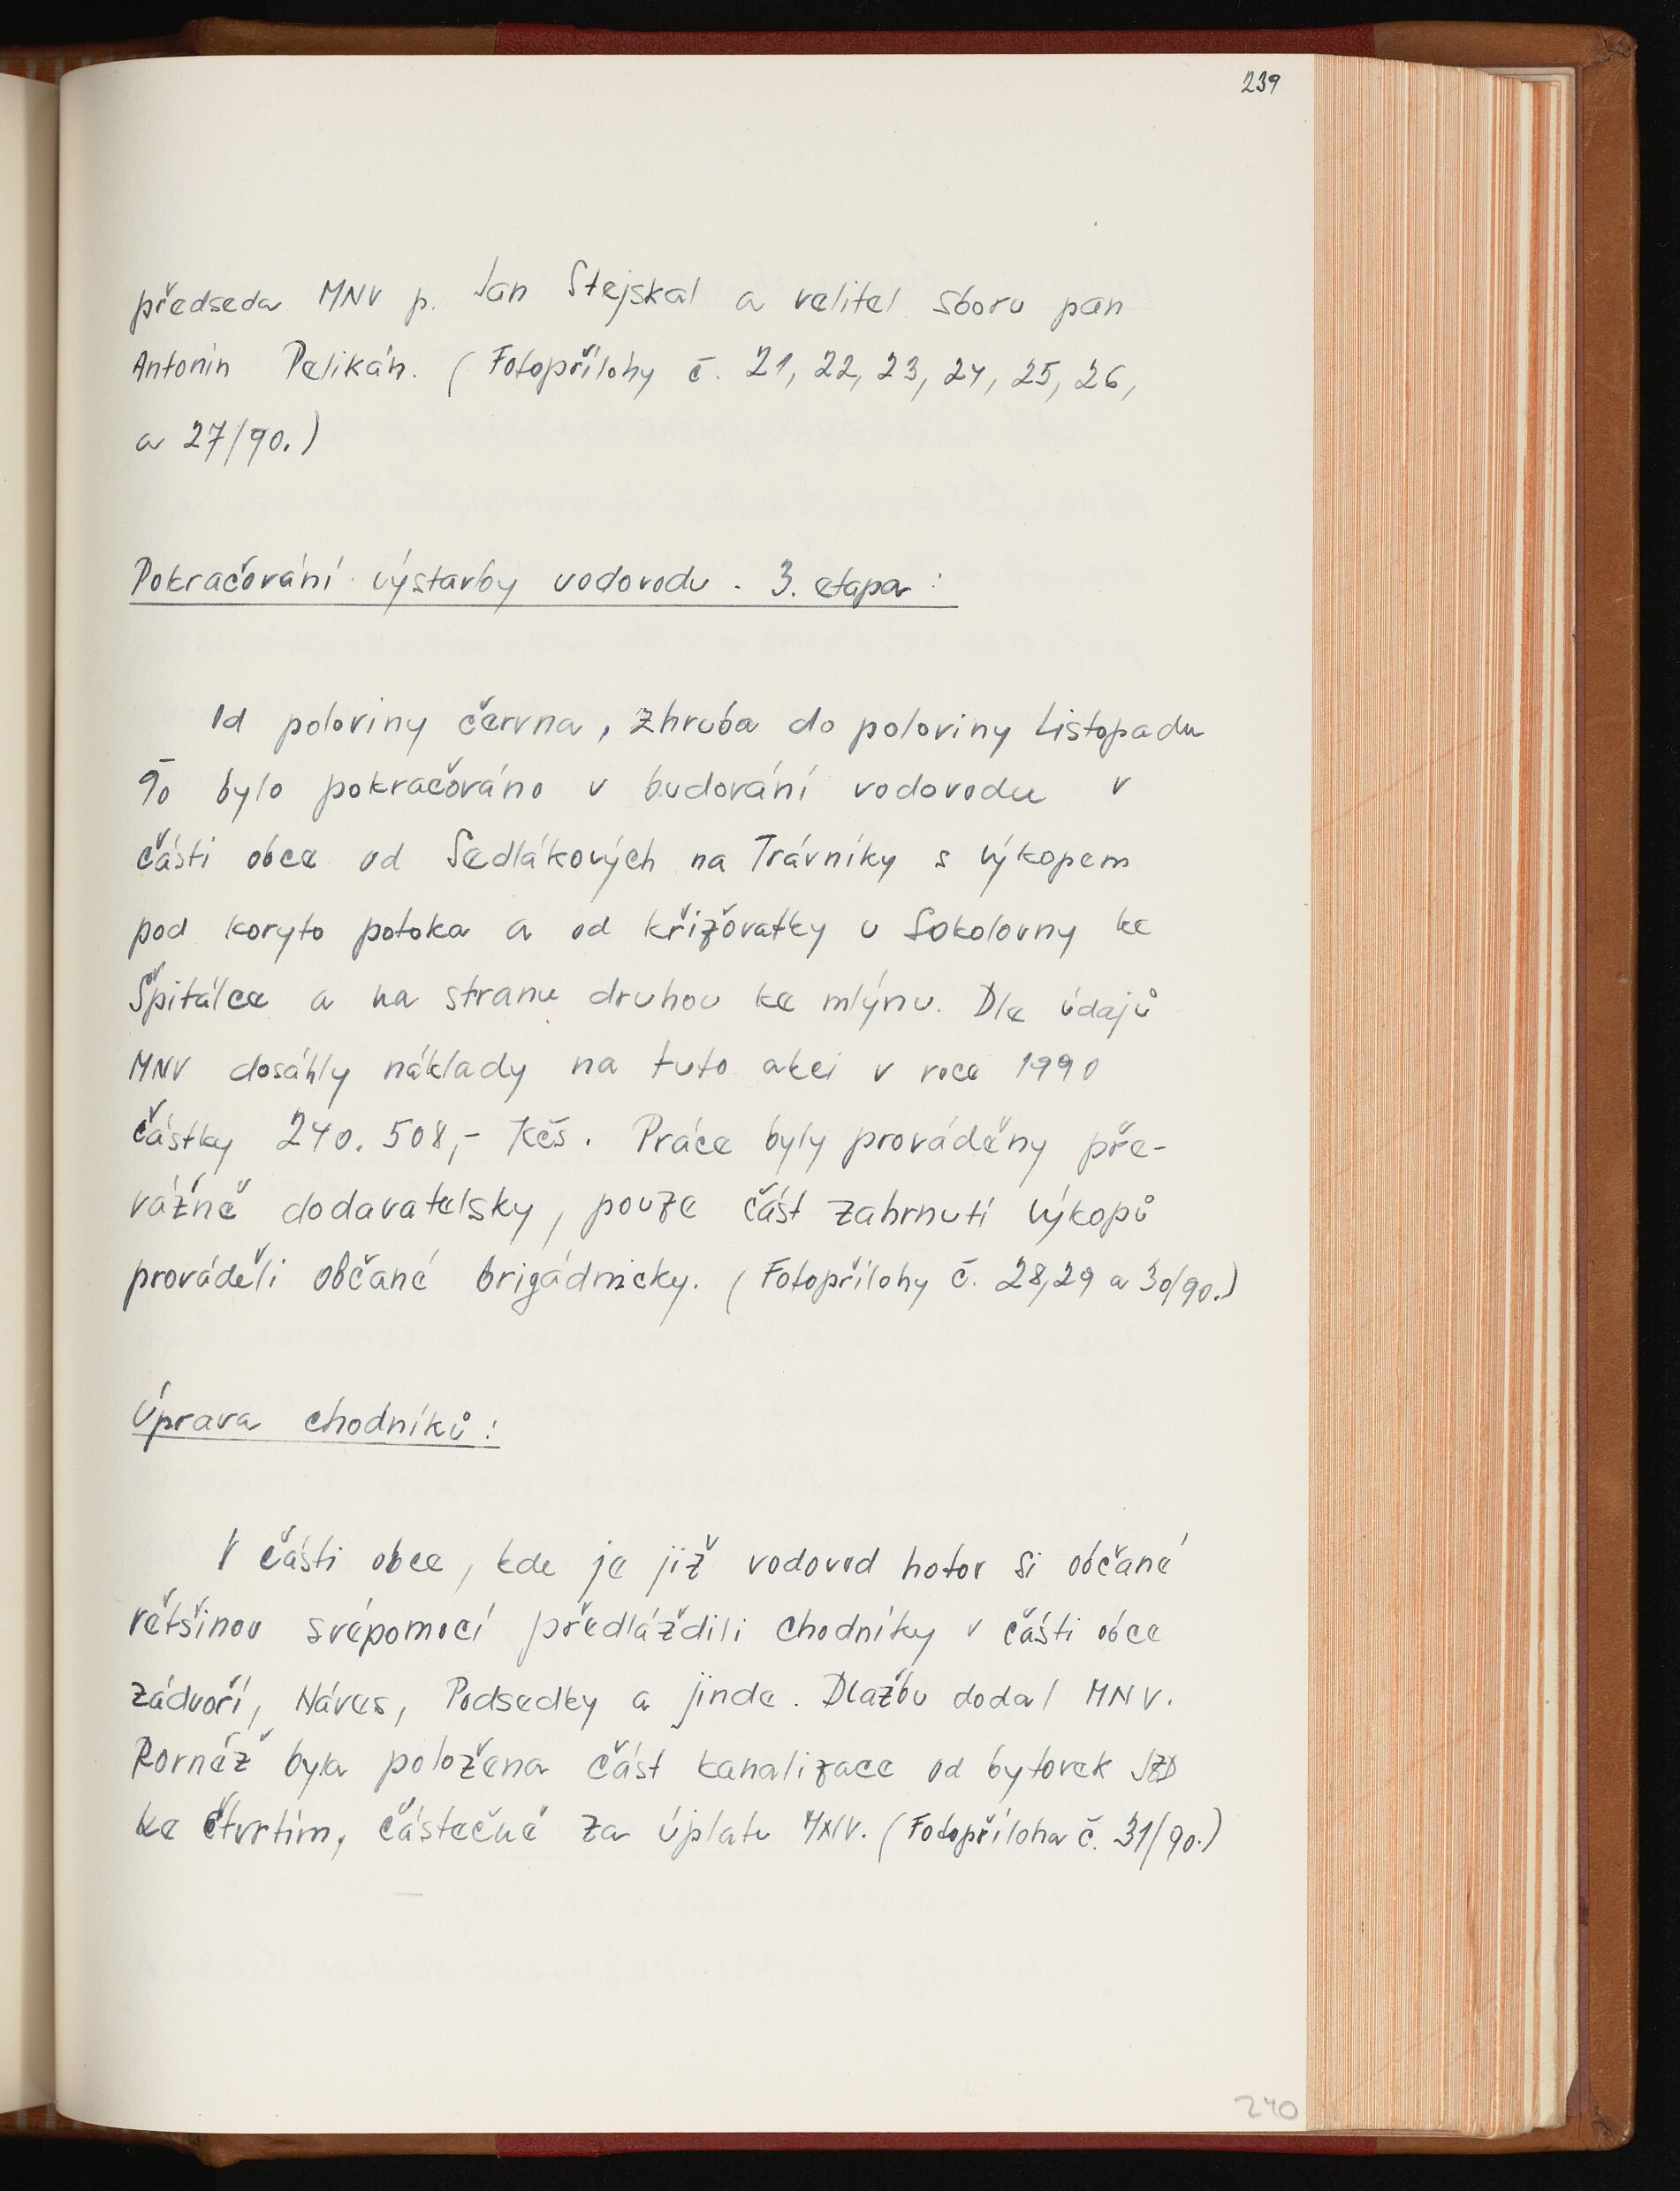 239
předseda MNV p. Jan Stejskal a velitel sboru pan
Antonín Pelikán. (Fotopřílohy č. 21, 22, 23, 24, 25, 26,
a 27/90.)
Pokračování výstavby vodovodu - 3. etapa:
Od poloviny června, zhruba do poloviny Listopadu
90 bylo pokračováno v budování vodovodu v
části obce od Sedlákových na Trávníky s výkopem
pod koryto potoka a od křižovatky u Sokolovny ke
Špitálce a na stranu druhou ke mlýnu. Dle údajů
MNV dosáhly náklady na tuto akci v roce 1990
částky 240.508,- Kčs. Práce byly prováděny pře-
vážně dodavatelsky, pouze část zahrnutí výkopů
prováděli občané brigádnicky. (Fotopřílohy č. 28,29 a 30/90.)
Úprava chodníků:
V části obce, kde je již vodovod hotov si občané
většinou svépomocí předláždili chodníky v části obce
zádvoří, Náves, Podsedky a jinde. Dlažbu dodal MNV.
Rovněž byla položena část kanalizace od bytovek JZD
ke čtvrtím, částečně za úplatu MNV. (Fotopříloha č. 31/90.)
240